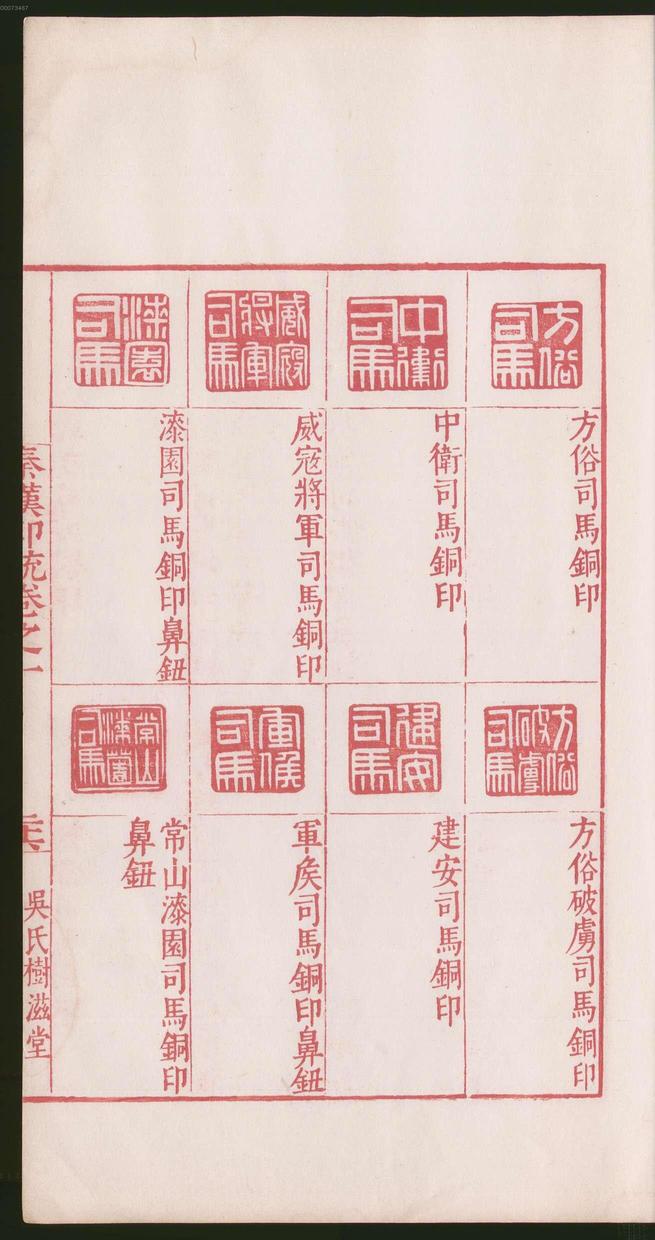 00073467
方俗司馬
中衛司馬
威寇將軍司馬
漆園司馬
方俗司馬銅印
中衛司馬銅印
威寇將軍司馬銅印
漆園司馬銅印鼻鈕
方俗破虜司馬
建安司馬
軍侯司馬
常山漆園司馬
方俗破虜司馬銅印
建安司馬銅印
軍矦司馬銅印鼻鈕
常山漆園司馬銅印
鼻鈕
秦漢印統卷之一
吳氏樹滋堂